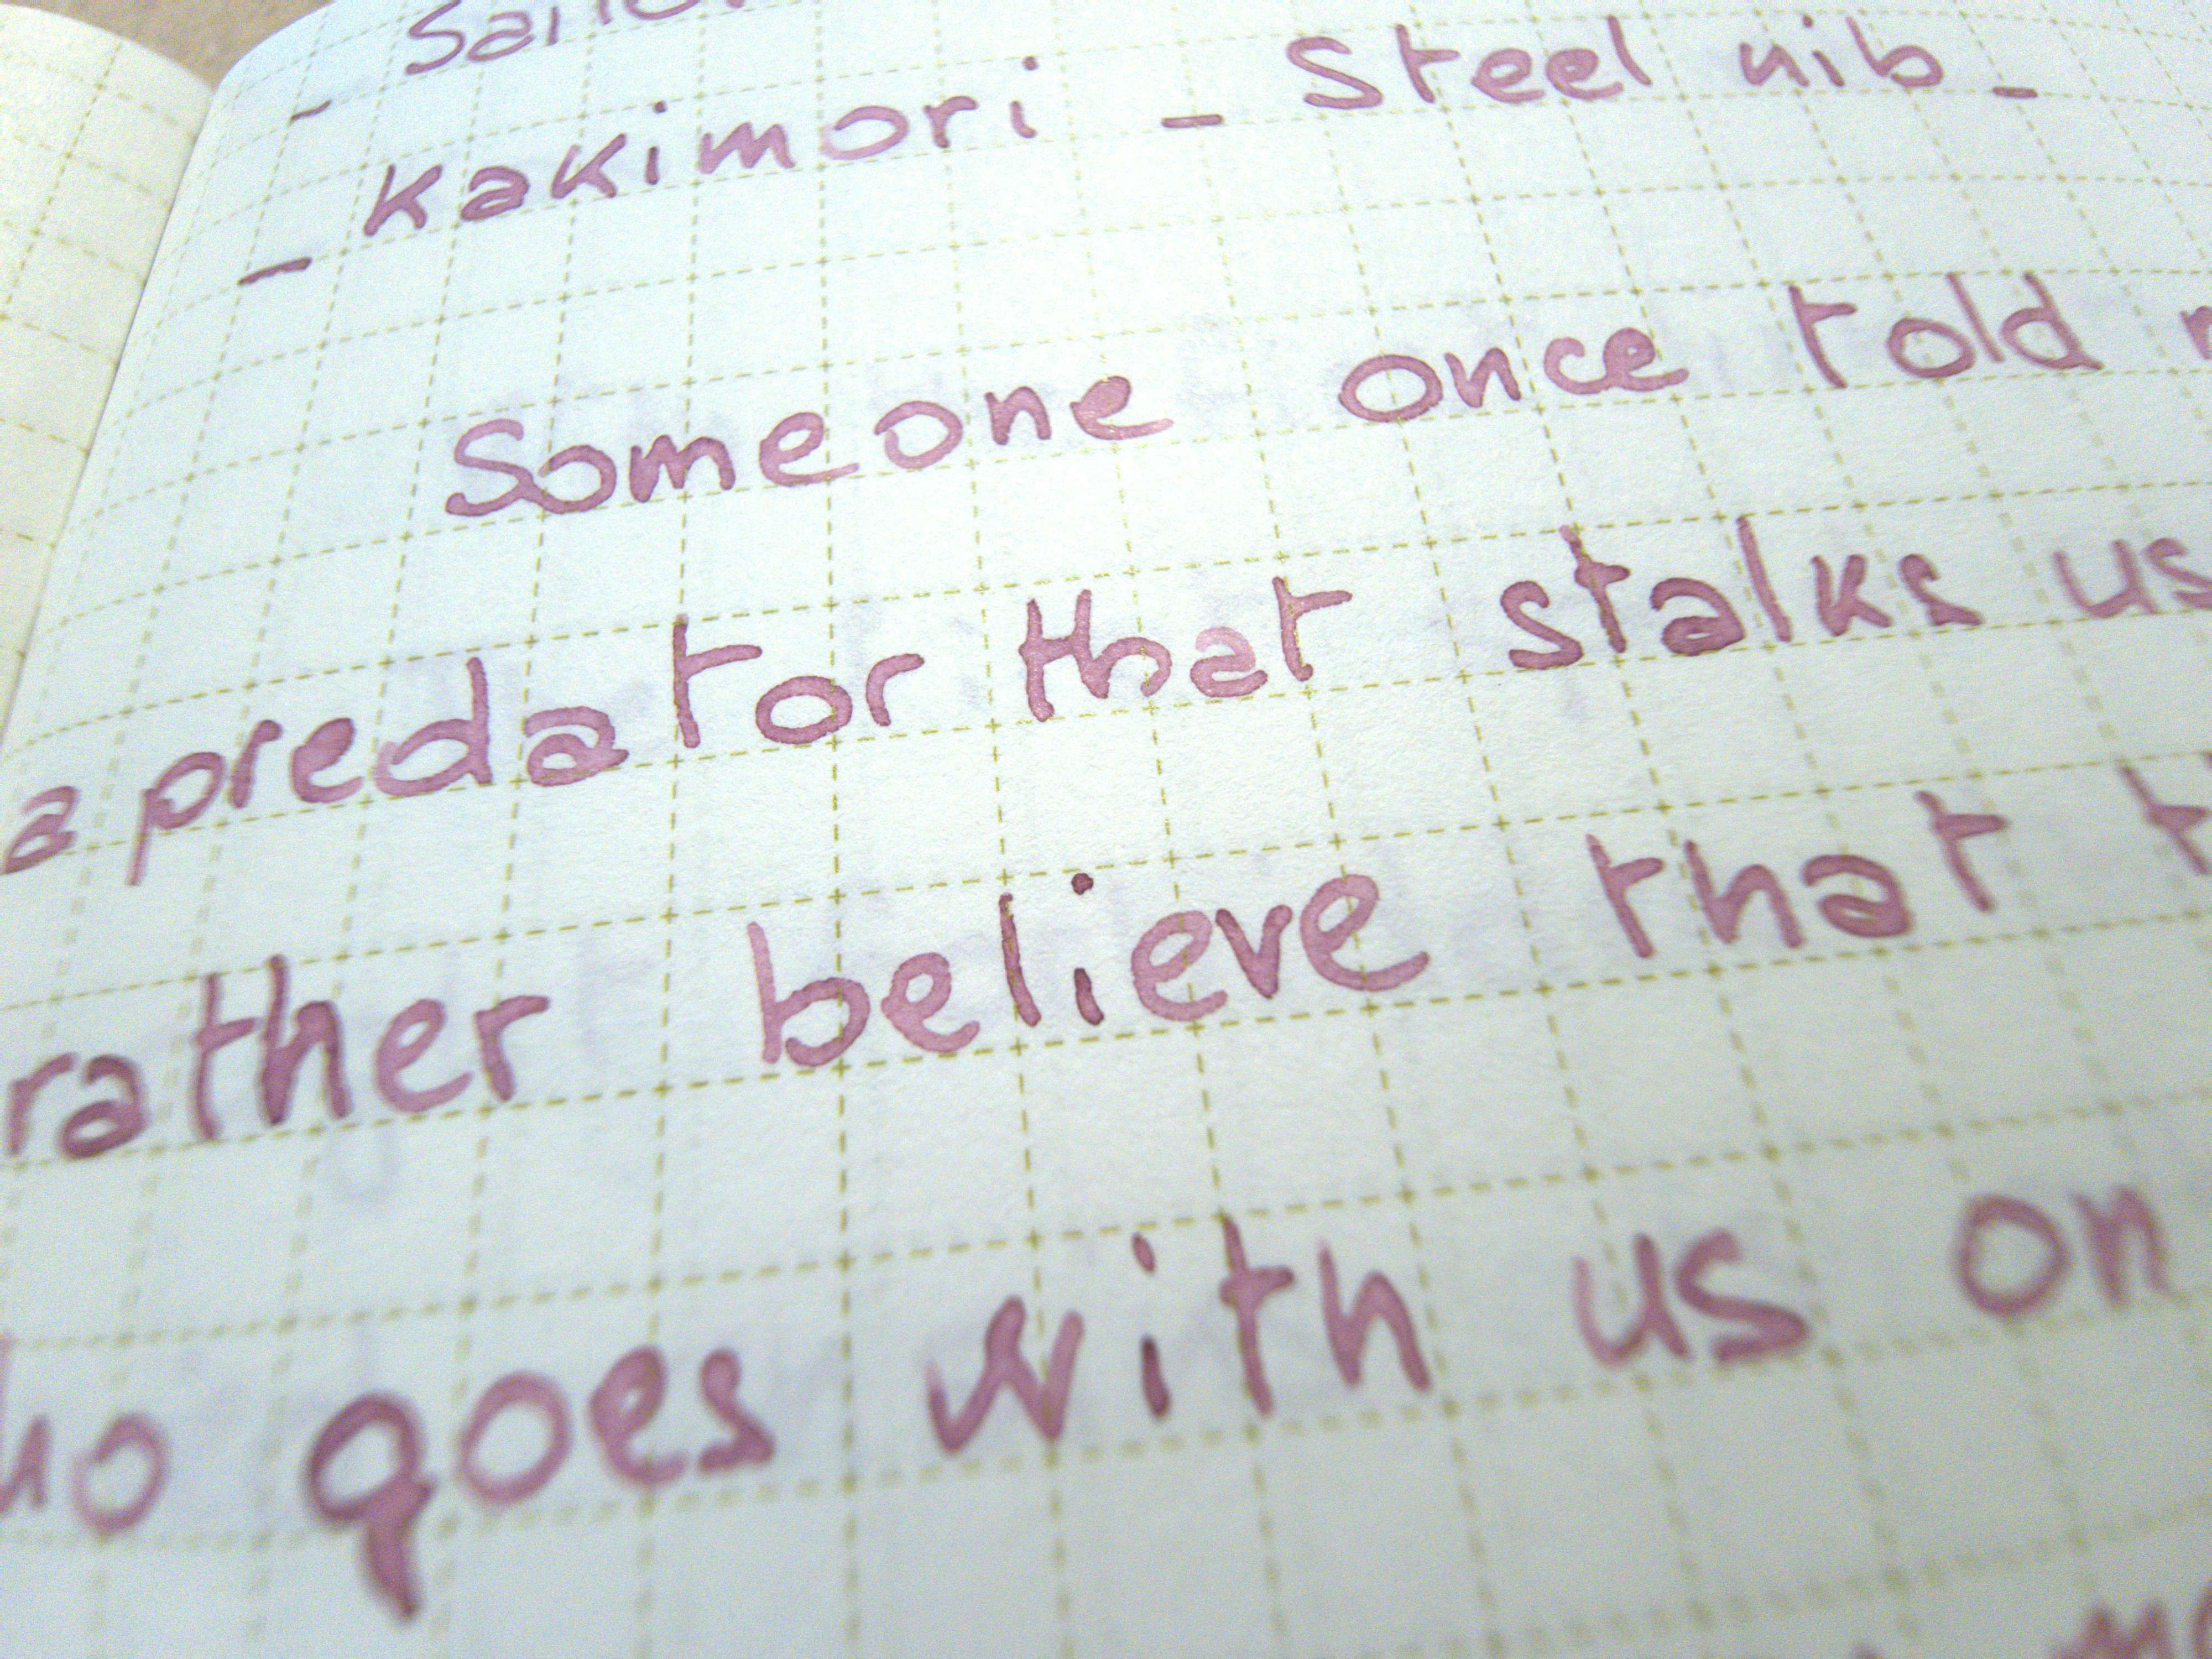 - Kakimori - Steel nib -
Someone once told
a predator that stalks us
rather believe that
goes with us on